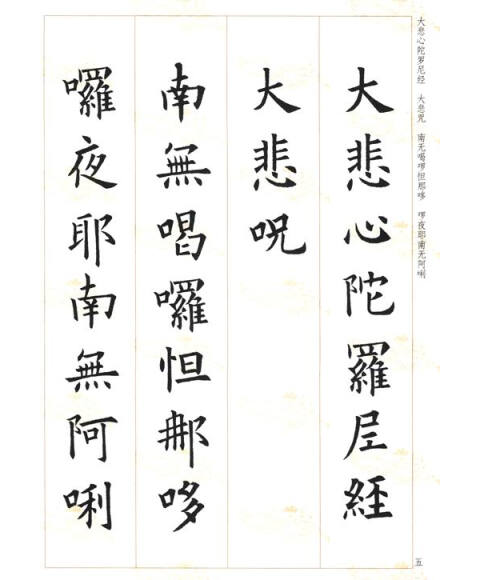 大悲心陀罗尼经 大悲咒 南无喝啰怛那哆 啰夜耶南无阿唎
大悲心陀羅尼經
大悲咒
南無喝囉怛那哆
囉夜耶南無阿唎
五